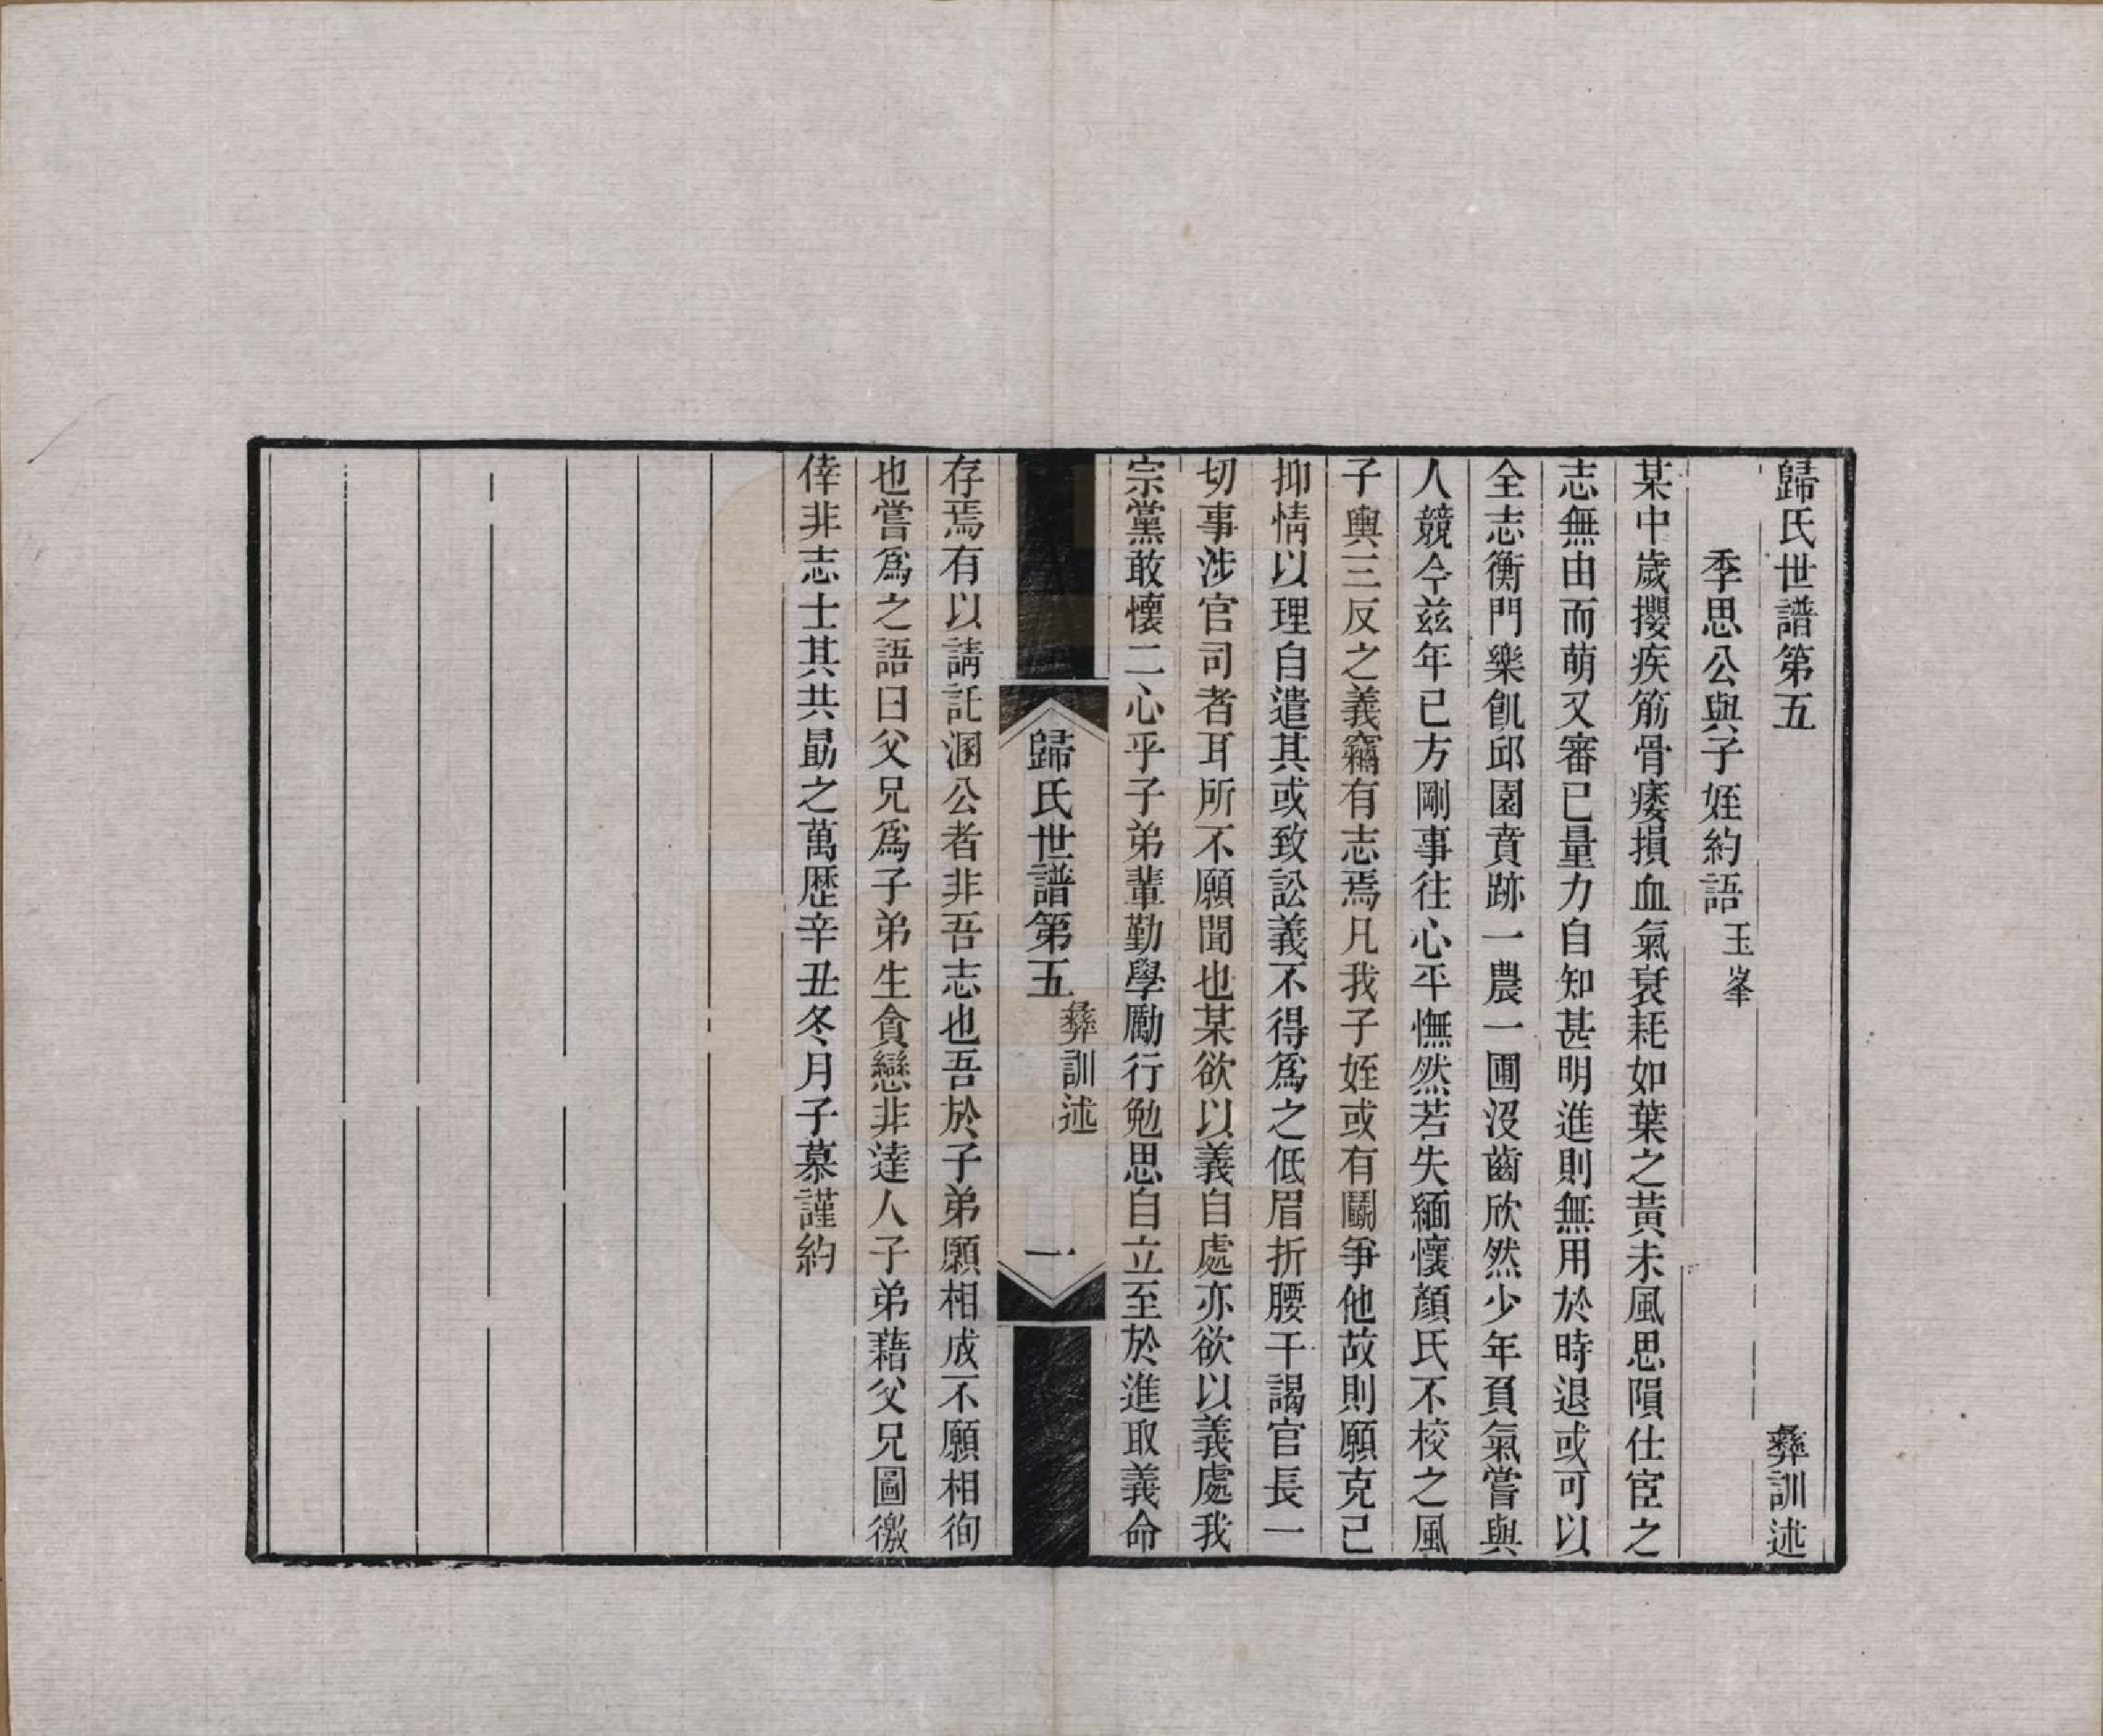 歸氏世譜第五　彝訓述
季思公與子姪約語 玉峯
某中歲攖疾筋骨痿損血氣衰耗如葉之黃未風思隕仕宦之
志無由而萌又審已量力自知甚明進則無用於時退或可以
全志衡門樂飢邱園賁跡一農一圃沒齒欣然少年負氣嘗與
人競今兹年已方剛事往心平憮然若失緬懷顏氏不校之風
子輿三反之義竊有志焉凡我子姪或有鬭爭他故則願克己
抑情以理自遣其或致訟義不得爲之低眉折腰干謁官長一
切事涉官司者耳所不願聞也某欲以義自處亦欲以義處我
宗黨敢懷二心乎子弟輩勤學勵行勉思自立至於進取義命
歸氏世譜第五 彝訓述 一
存焉有以請託溷公者非吾志也吾於子弟願相成不願相徇
也嘗爲之語曰父兄爲子弟生貪戀非達人子弟藉父兄圖徼
倖非志士其共勗之萬歷辛丑冬月子慕謹約